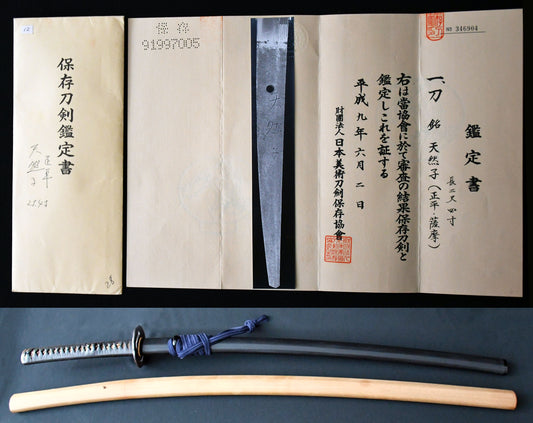 12
保存刀剣鑑定書
天然子
28
保存
91997005
天然子
No 346904
鑑定書
一、刀 銘 天然子(正平・薩摩)
長二尺四寸
右は當協會に於て審査の結果保存刀剣と
鑑定しこれを証する
平成九年六月二日
財團法人日本美術刀剣保存協會